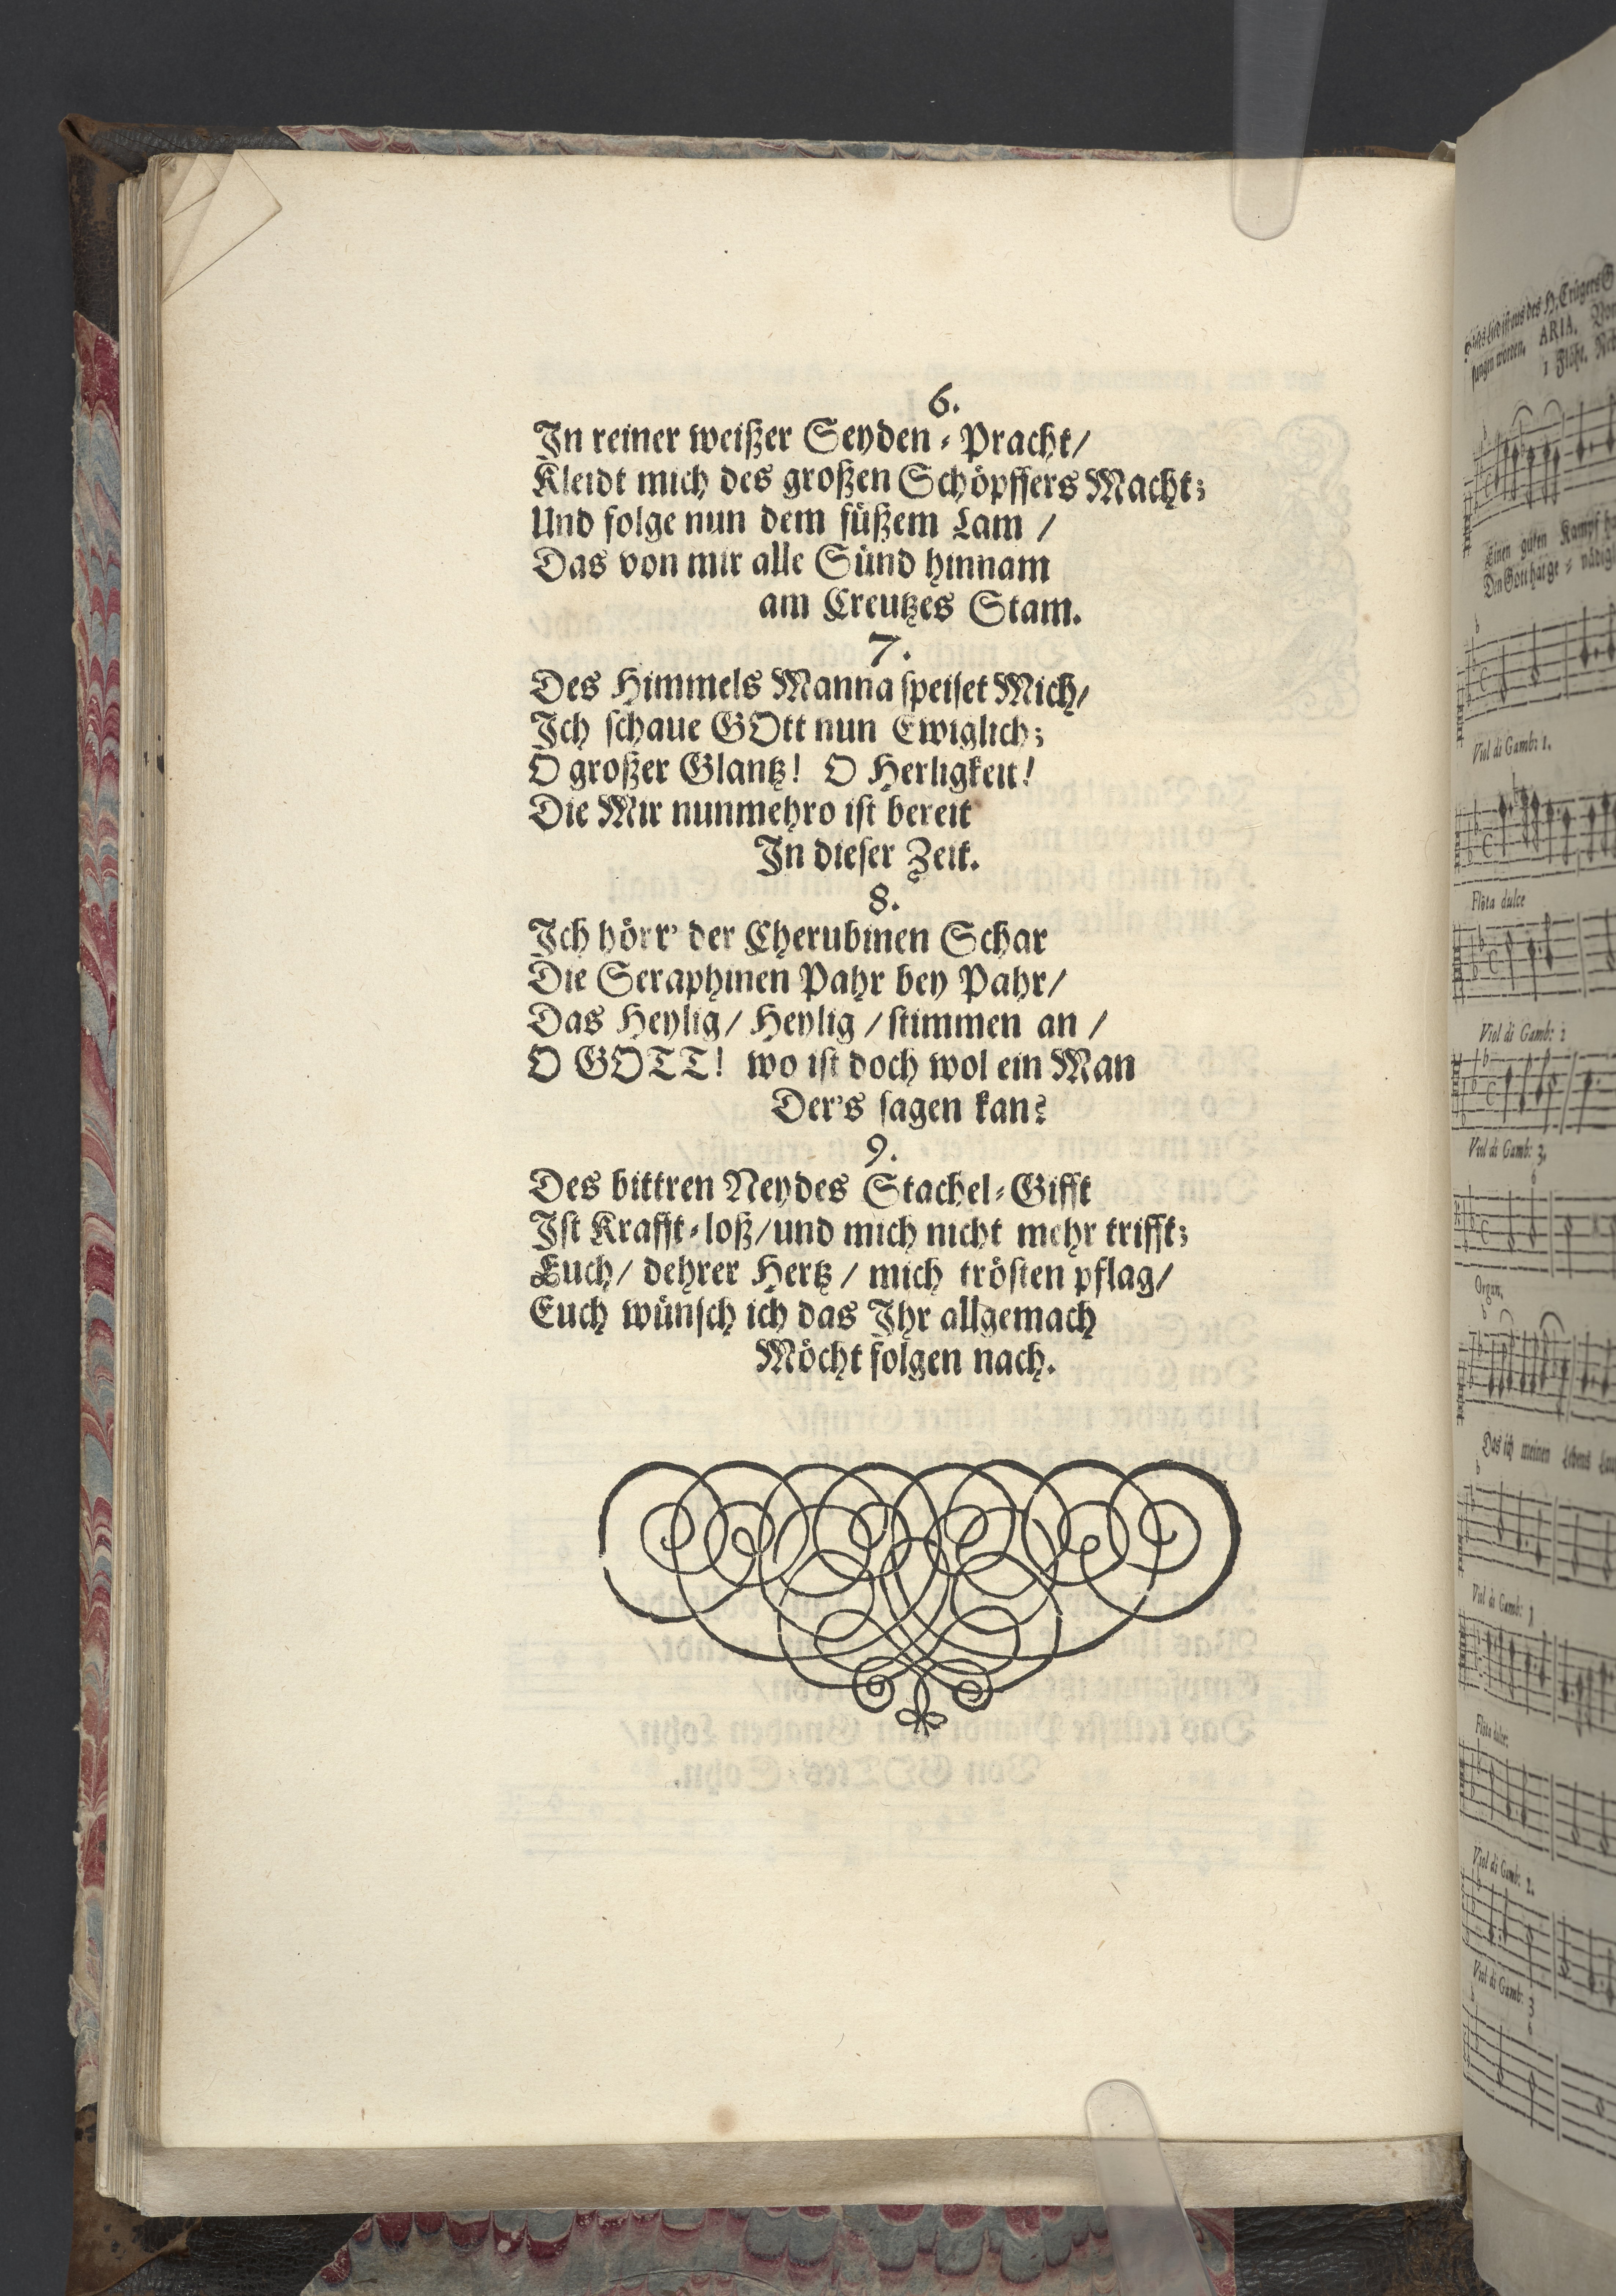 6.
In reiner weißer Seyden-Pracht/
Kleidt mich des großen Schöpffers Macht;
Und folge nun dem süßem Lam /
Das von mir alle Sünd hinnam
am Creutzes Stam.
7.
Des Himmels Manna speiset Mich/
Ich schaue GOtt nun Ewiglich;
O großer Glantz! O Herligkeit!
Die Mir nunmehro ist bereit
In dieser Zeit.
8.
Ich hörr' der Cherubinen Schar
Die Seraphinen Pahr bey Pahr/
Das Heylig/ Heylig / stimmen an /
O GOTT! wo ist doch wol ein Man
Der's sagen kan?
9.
Des bittren Neydes Stachel-Gifft
Ist Krafft-loß/ und mich nicht mehr trifft;
Euch/ dehrer Hertz / mich trösten pflag/
Euch wünsch ich das Ihr allgemach
Möcht folgen nach.
ARIA.
Einen guten Kampf
Viol di Gamb: 1.
Flöta dulce
Viol di Gamb: 2
Viol di Gamb: 3.
Organ.
Das ich meinen Lebens
Viol di Gamb: 1
Flöta dulce:
Viol di Gamb: 2.
Viol di Gamb: 3